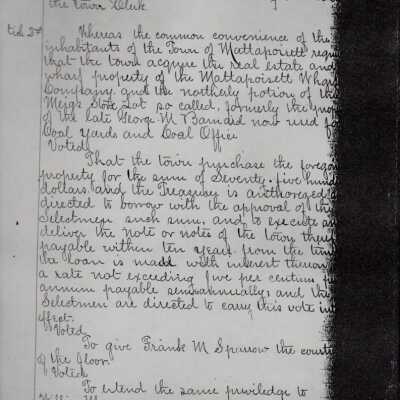 the Town Clerk
Whereas the common convenience of the
inhabitants of the Town of Mattapoisett requi
that the town acquire the real estate and
wharf property of the Mattapoisett Wharf
Company and the northerly potion of the
Meigs Store Lot so called, formerly the prop
of the late George M Barnard now used for
Coal Yards and Coal Office
Voted
That the town purchase the foregoi
property for the sum of Seventy-five hund
dollars and the Treasurey is authoreized a
directed to borrow with the approval of the
Selectmen such sum, and to execute an
deliver the note or notes of the town ther
payable within ten years from the time
the loan is made with interest thereon
a rate not exceeding five per centum
annum payable semiannually, and the
Selectmen are directed to carry this vote in
effect.
Voted
To give Frank M Sparrow the courte
of the floor.
Voted
To extend the same priviledge to